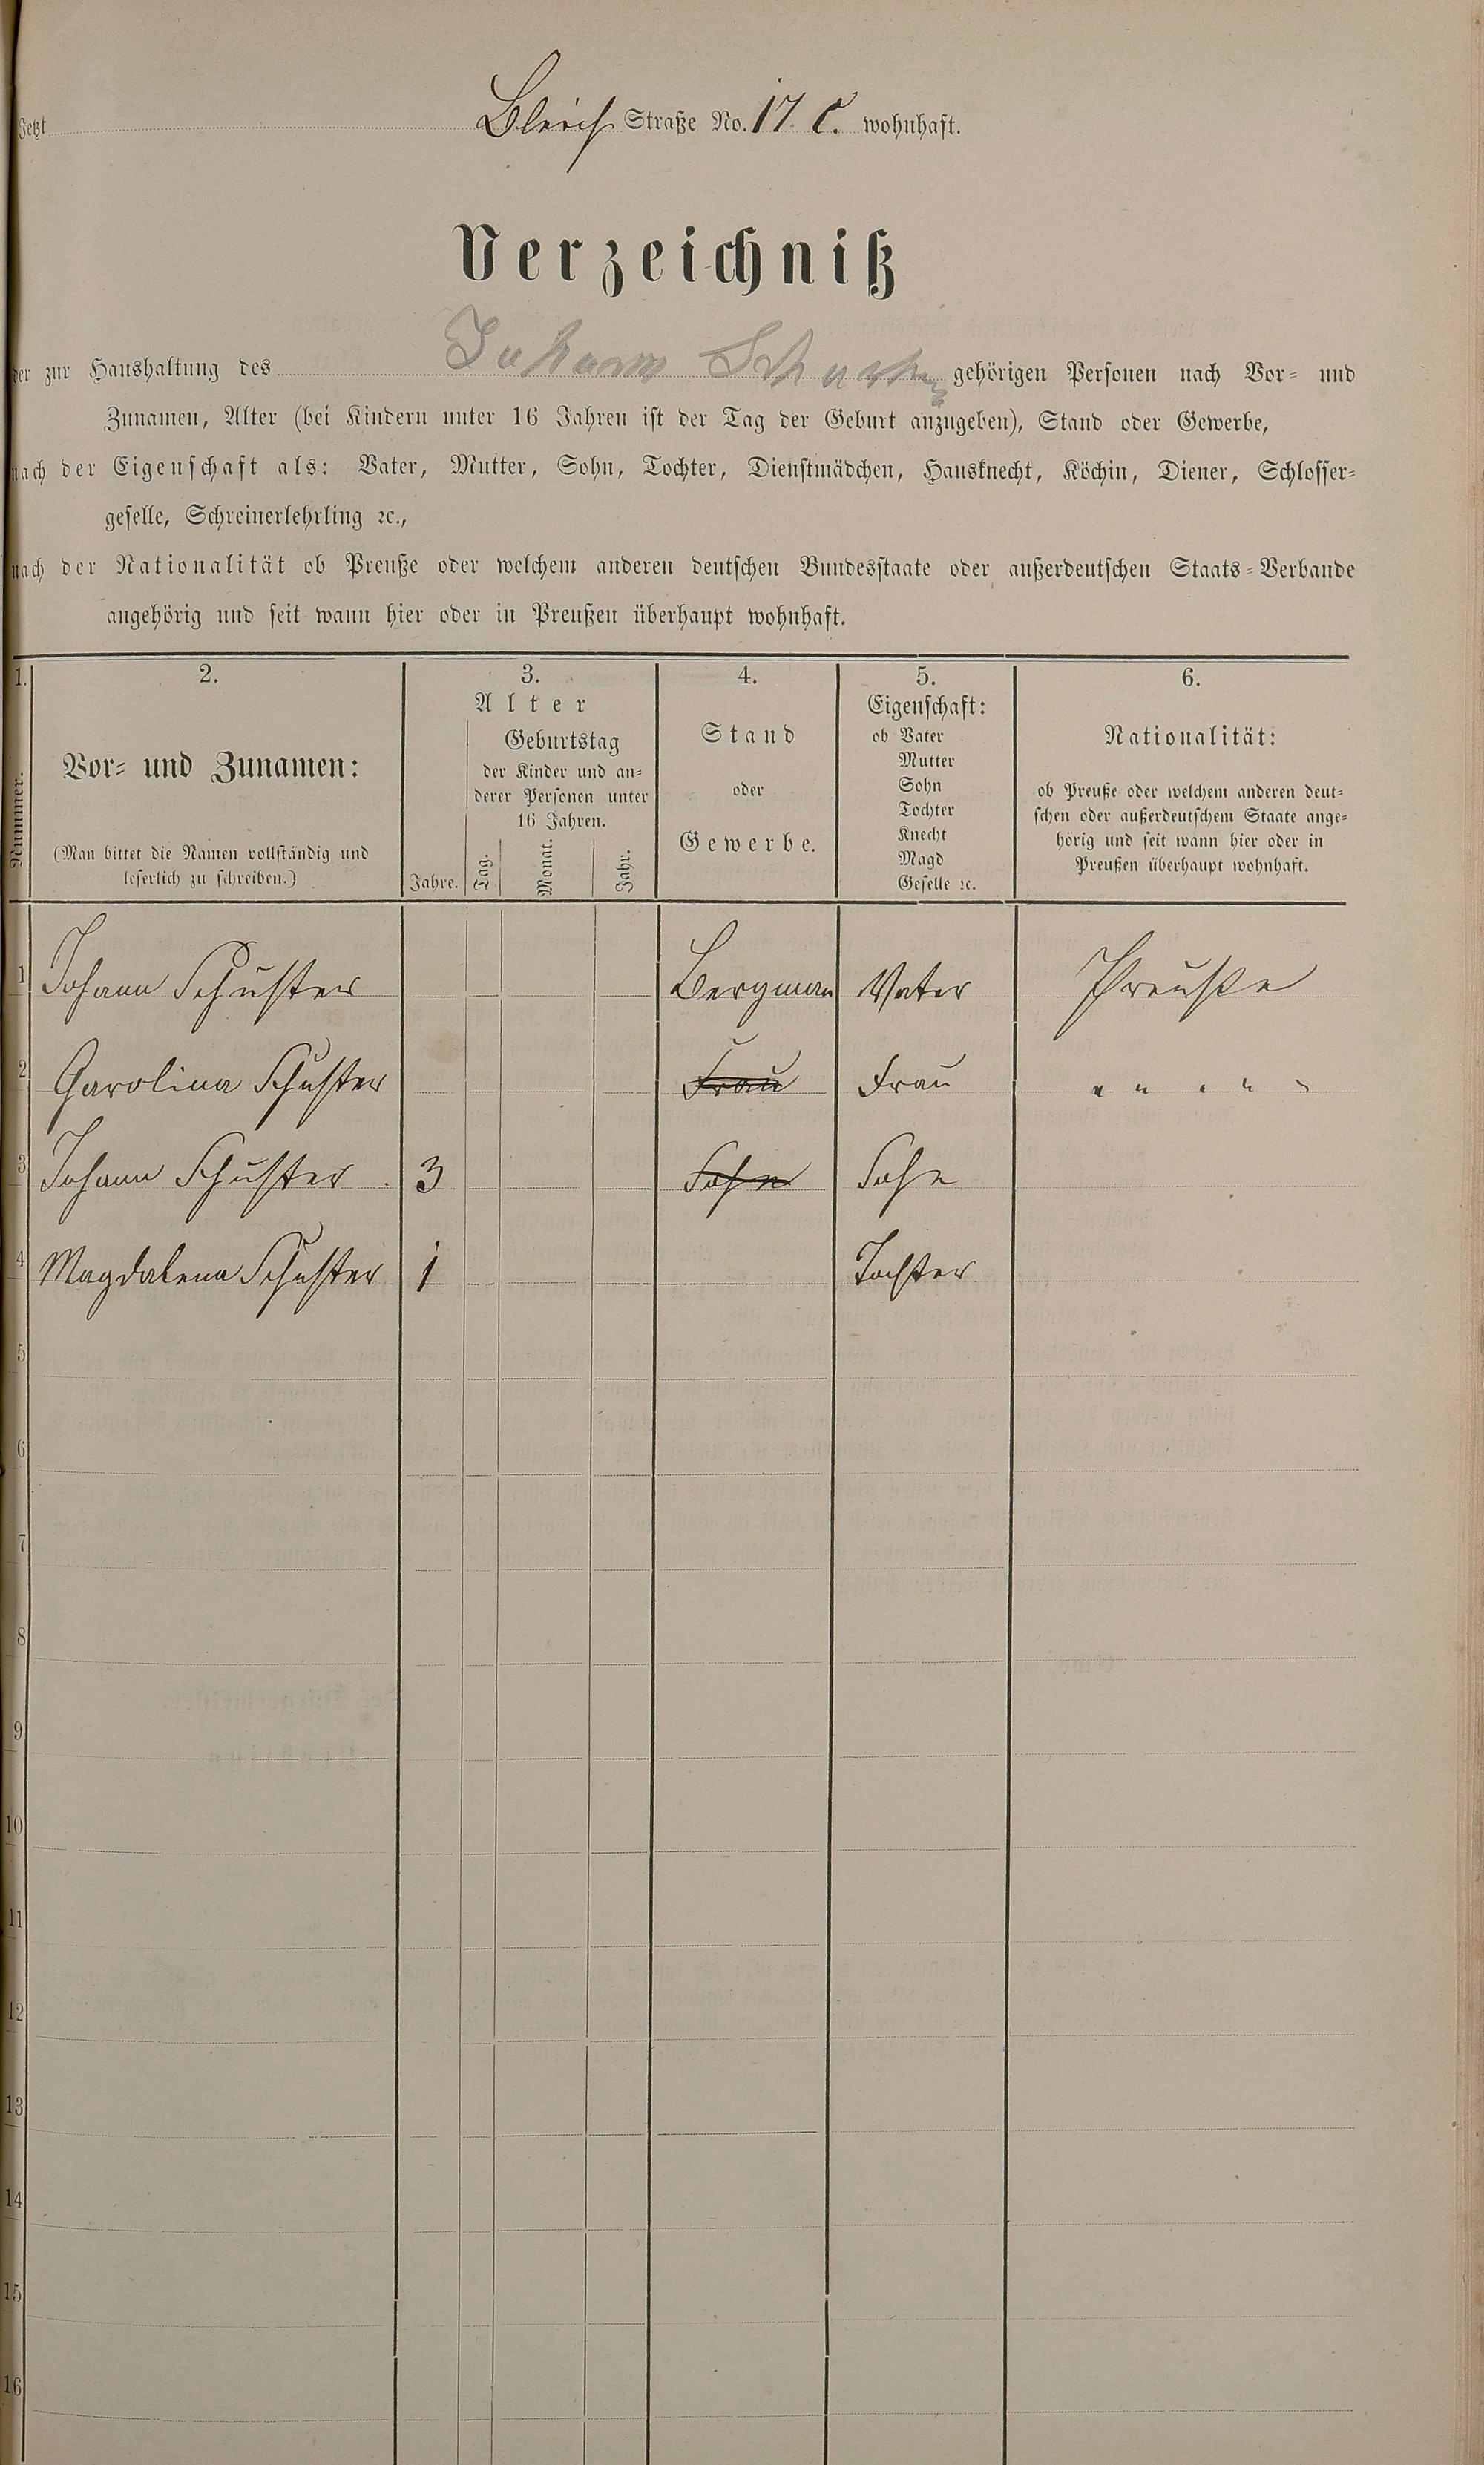 Jetzt Bleich Straße No. 17. C. wohnhaft.
Verzeichniß
der zur Haushaltung des Johann Schuster gehörigen Personen nach Vor- und
Zunamen, Alter (bei Kindern unter 16 Jahren ist der Tag der Geburt anzugeben), Stand oder Gewerbe,
nach der Eigenschaft als: Vater, Mutter, Sohn, Tochter, Dienstmädchen, Hausknecht, Köchin, Diener, Schlosser-
geselle, Schreinerlehrling ꝛc.,
nach der Nationalität ob Preuße oder welchem anderen deutschen Bundesstaate oder außerdeutschen Staats-Verbande
angehörig und seit wann hier oder in Preußen überhaupt wohnhaft.
1.
Nummer.
2.
Vor- und Zunamen:
(Man bittet die Namen vollständig und
leserlich zu schreiben.)
3.
Alter
Jahre.
Geburtstag
der Kinder und an-
derer Personen unter
16 Jahren.
Tag. Monat. Jahr.
4.
Stand
oder
Gewerbe.
5.
Eigenschaft:
ob Vater
Mutter
Sohn
Tochter
Knecht
Magd
Geselle ꝛc.
6.
Nationalität:
ob Preuße oder welchem anderen deut-
schen oder außerdeutschem Staate ange-
hörig und seit wann hier oder in
Preußen überhaupt wohnhaft.
1 Johann Schuster Bergman Vater Preuße
2 Carolina Schuster Frau Frau " " " " "
3 Johann Schuster 3 Sohn Sohn
4 Magdalena Schuster 1 Tochter
5
6
7
8
9
10
11
12
13
14
15
16